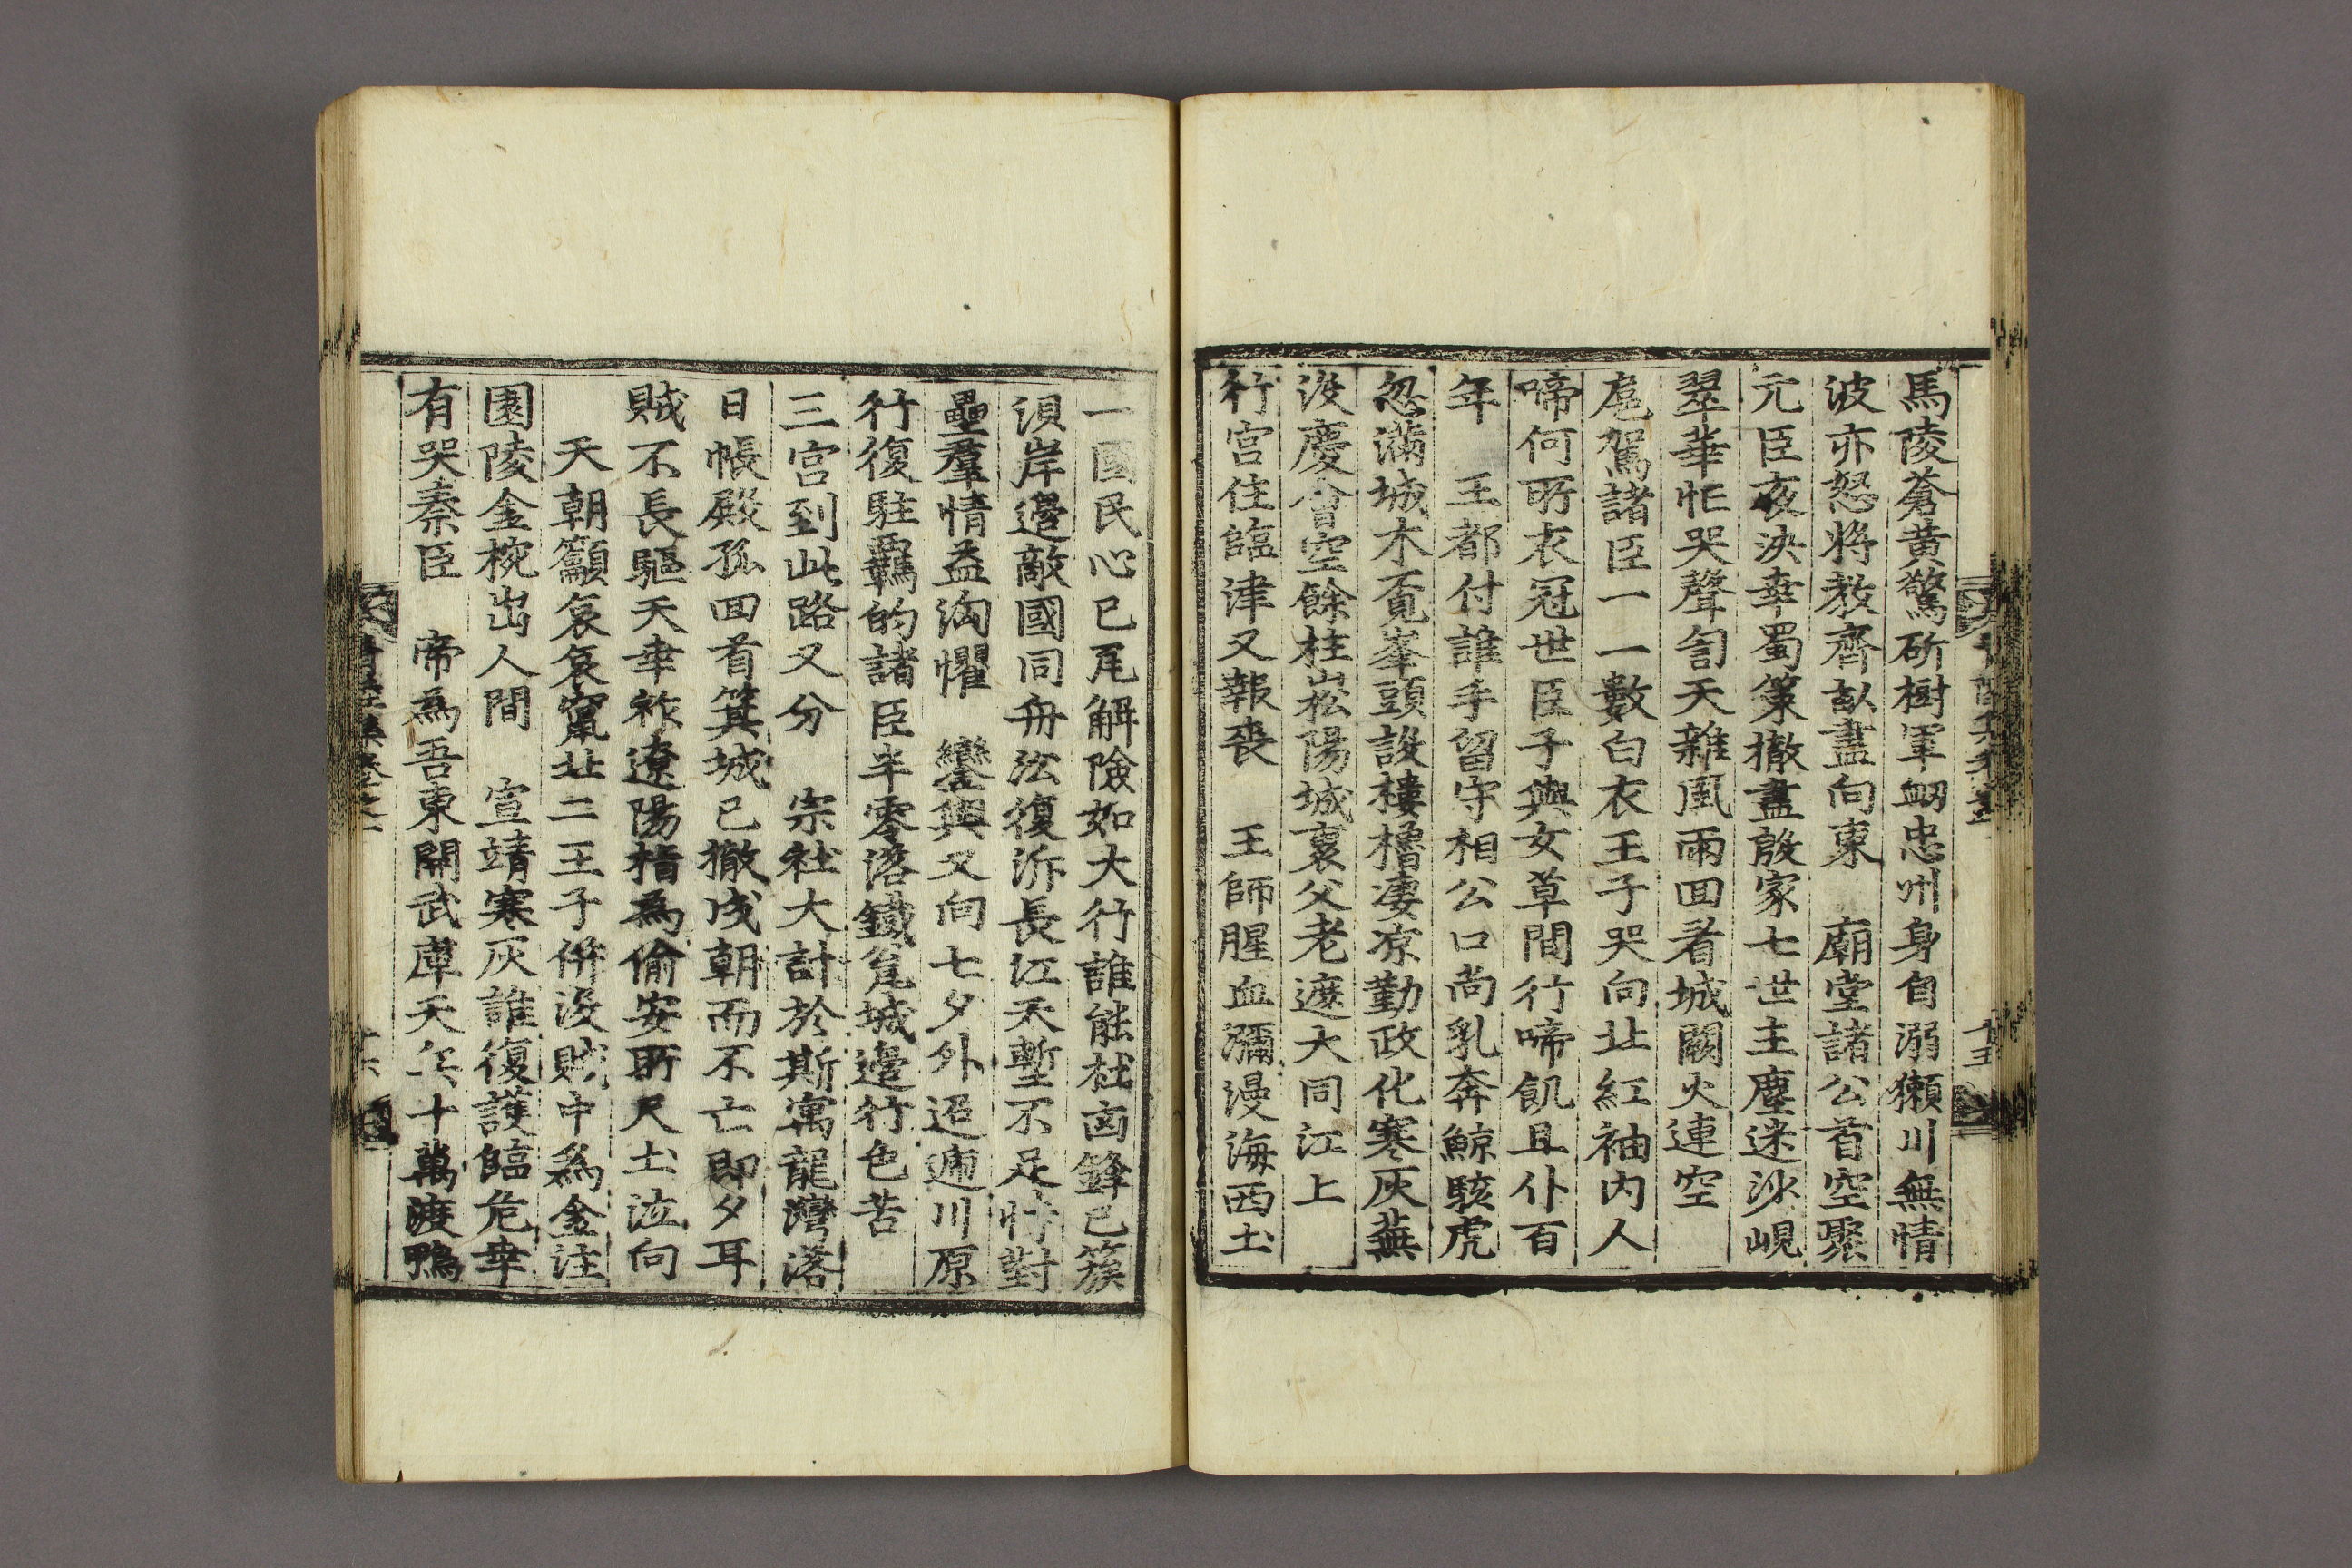 馬陵蒼黃驚斫樹軍衂忠州身自溺獺川無情
波亦怒將教齊畝盡向東　廟堂諸公首空聚
元臣夜決幸蜀策撤盡殷家七世主塵迷沙峴
翠華忙哭聲訇天雜風雨回看城闕火連空
扈駕諸臣一一數白衣王子哭向北紅袖內人
啼何所衣冠世臣子與女草間行啼飢且仆百
年　王都付誰手留守相公口尚乳奔鯨駭虎
忽滿城木覓峯頭設樓櫓凄凉勤政化寒灰蕪
沒慶會空餘柱崧陽城裏父老遮大同江上
行宮住臨津又報喪　王師腥血瀰漫海西土
一國民心已瓦解險如大行誰能杜凾鋒已簇
浿岸邊敵國同舟汾復泝長江天塹不足恃對
壘羣情益洶懼　鑾輿又向七夕外迢遞川原
行復駐羈的諸臣半零落鐵瓮城邊行色苦
三宮到此路又分　宗社大計於斯寓龍灣落
日帳殿孤回首箕城已撤戍朝而不亡即夕耳
賊不長驅天幸祚遼陽指爲偷安所尺土泣向
天朝籲哀哀竄北二王子併沒賊中爲金注
園陵金椀出人間　宣靖寒灰誰復護臨危幸
有哭秦臣　帝爲吾東開武庫天兵十萬渡鴨